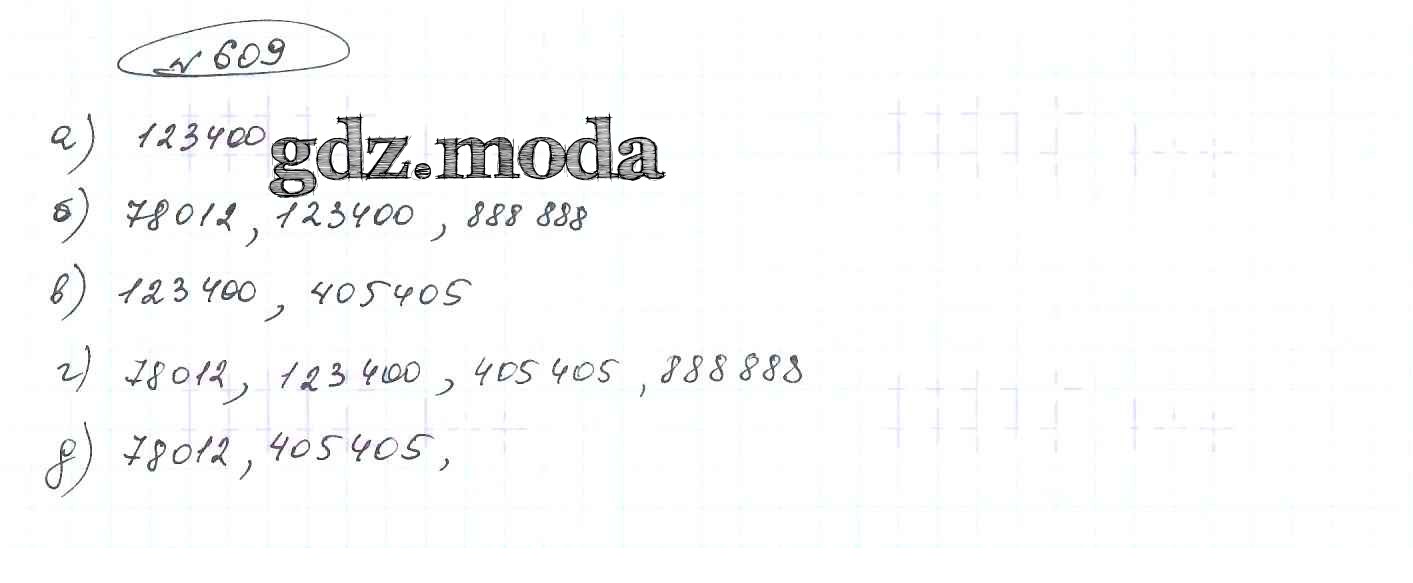 № 609
а) 123400
gdz.moda
б) 78012, 123400, 888 888
в) 123 400, 405405
г) 78012, 123 400, 405 405, 888 888
д) 78012, 405 405,